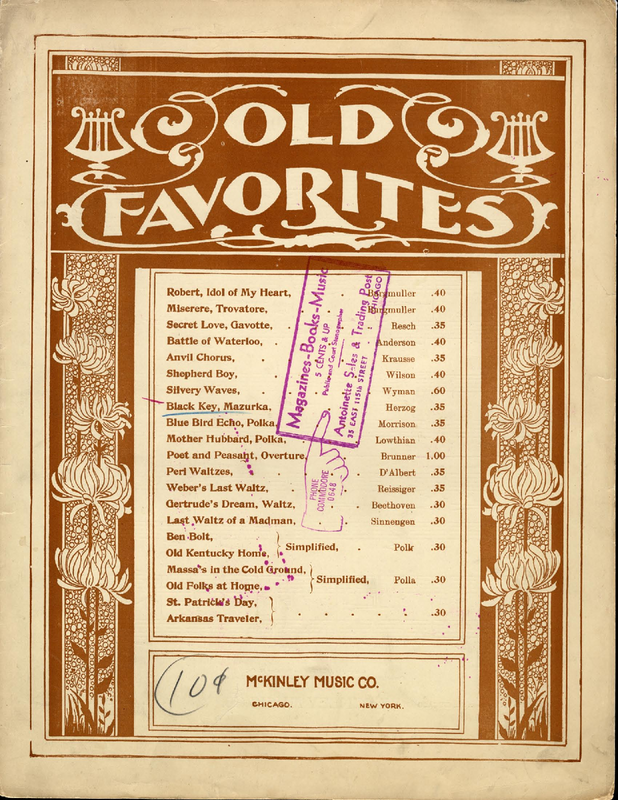 OLD
FAVORITES
Robert, Idol of My Heart, . . . Burgmuller .40
Miserere, Trovatore, . . . Burgmuller .40
Secret Love, Gavotte, . . . Resch .35
Battle of Waterloo, . . . Anderson .40
Anvil Chorus, . . . Krausse .35
Shepherd Boy, . . . Wilson .40
Silvery Waves, . . . Wyman .60
Black Key, Mazurka, . . . Herzog .35
Blue Bird Echo, Polka . . . Morrison .35
Mother Hubbard, Polka, . . . Lowthian .40
Poet and Peasant, Overture, . . . Brunner 1.00
Peri Waltzes, . . . D'Albert .35
Weber's Last Waltz, . . . Reissiger .35
Gertrude's Dream, Waltz, . . . Beethoven .30
Last Waltz of a Madman, . . . Sinnengen .30
Ben Bolt,
Old Kentucky Home, } Simplified, . Polk .30
Massa's in the Cold Ground,
Old Folks at Home, } Simplified, . Polla .30
St. Patrick's Day,
Arkansas Traveler, } . . . .30
Magazines-Books-Music
5 CENTS & UP
Public and Court Stenographer
Antoinette Sales & Trading Post
35 EAST 115th STREET CHICAGO
PHONE
COMMODORE
0648
10¢
McKINLEY MUSIC CO.
CHICAGO. NEW YORK.